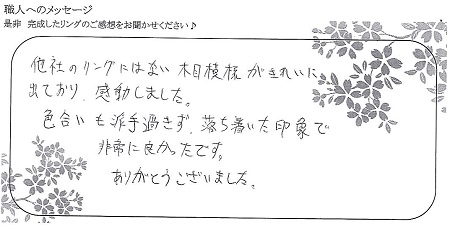 職人へのメッセージ
是非 完成したリングのご感想をお聞かせください♪
他社のリングには無い木目模様がきれいに
出ており、感動しました。
色合いも派手過ぎず、落ち着いた印象で
非常に良かったです。
ありがとうございました。